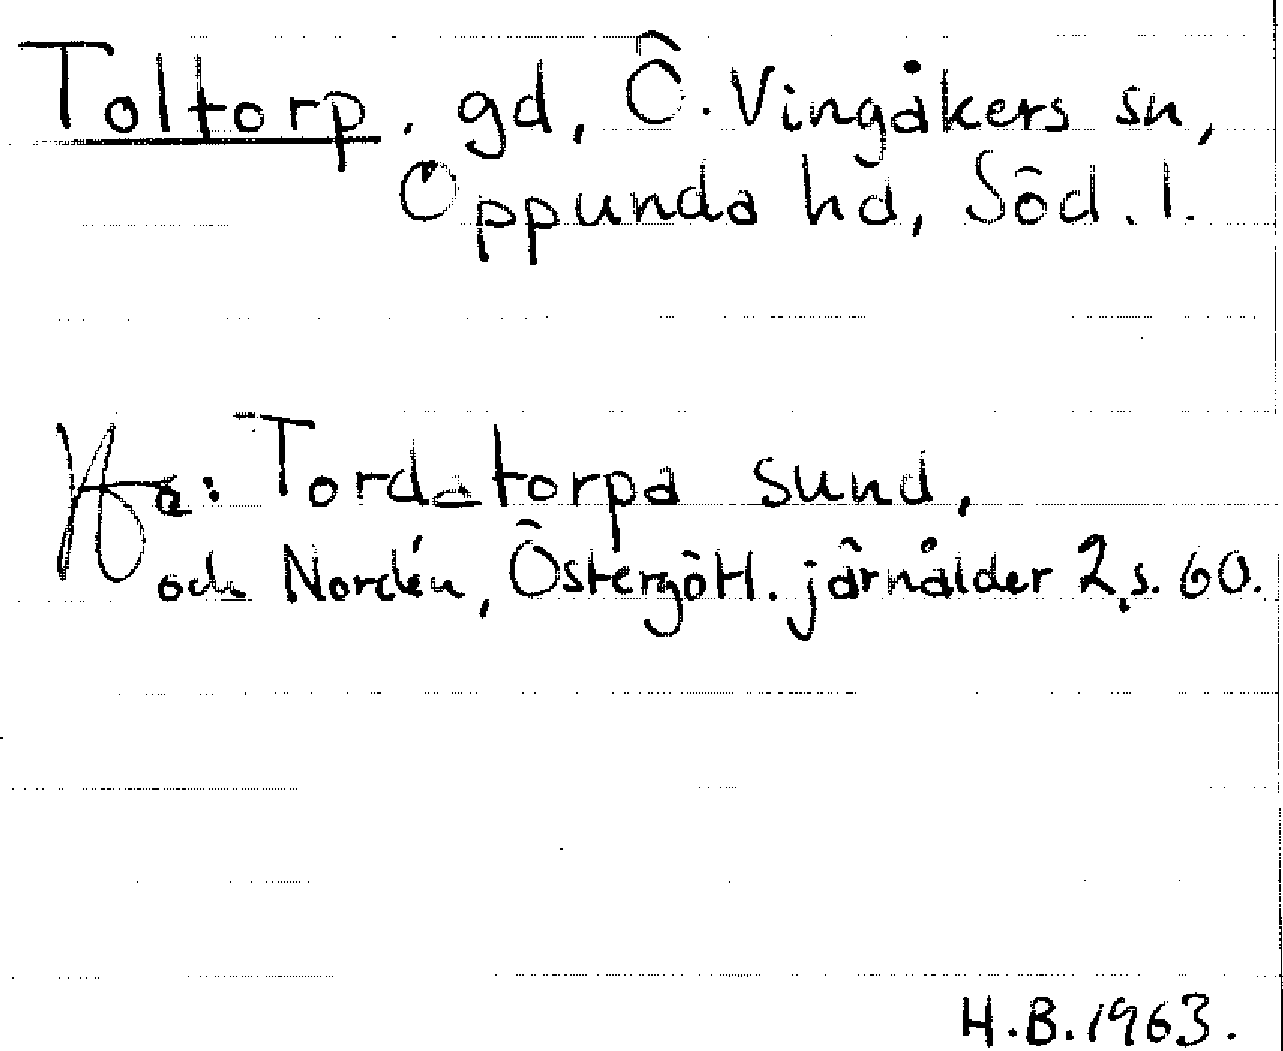 Toltorp. gd, Ö. Vingåkers sn,
Oppunda hd, Söd. l.
Jfr: Tordatorpa sund,
och Nordén, Östergötl. järnålder 2, s. 60.
H.B. 1963.